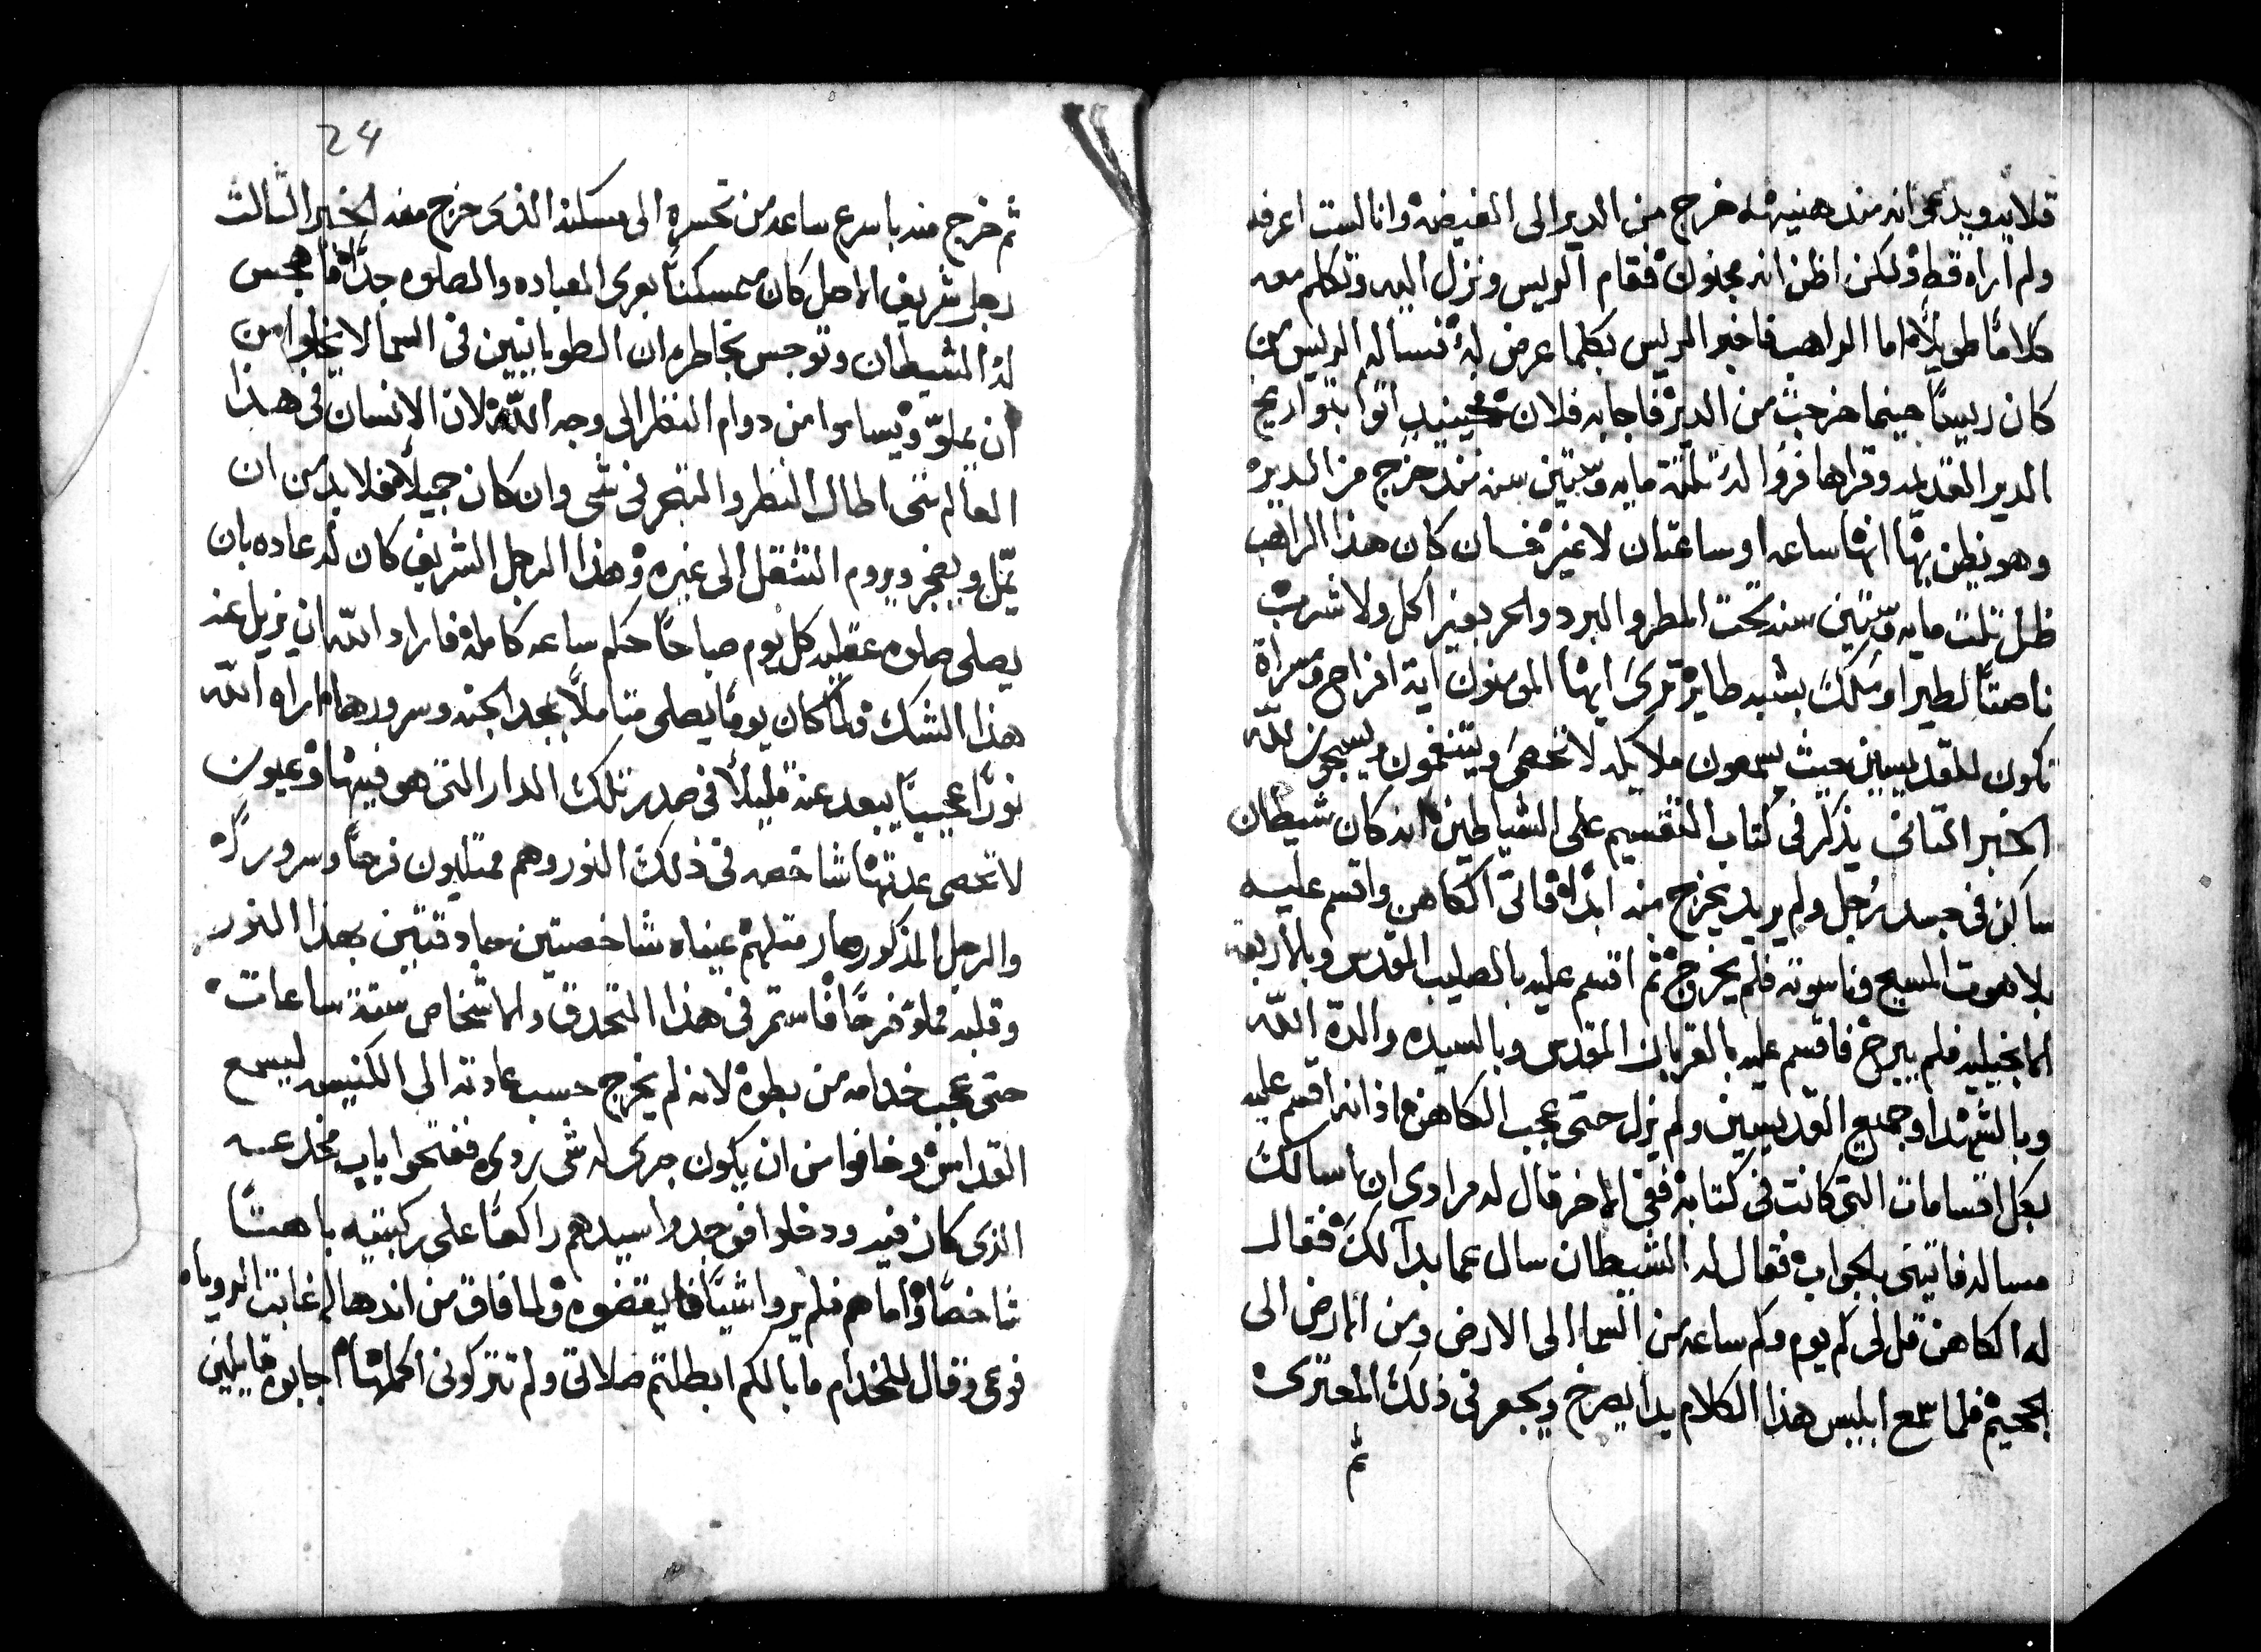 قلايه ويدعي انه منذ هنيهة خرج من الدير الى الغيضه وانا لست اعرفه
ولم اراه قط ولكن اظن انه مجنون فقام الريس ونزل اليه وتكلم معه
كلاماً طويلاً اما الراهب فاخبر الريس بكلما عرض له فساله الريس من
كان ريساً حينما خرجت من الدير فاجابه فلان فحينيذ اتوا بتواريخ
الدير القديمه وقراها فروا له ثلثة مايه وستين سنه منذ خرج من الدير
وهو يظن بها انها ساعه او ساعتان لا غير فسان كان هذا الراهب
ظل ثلث مايه وستين سنه تحت المطر والبرد والحر بغير اكل ولا شرب
ناصتاً لطير او ملك بشبه طاير ترى ايها المومنون اية افراح ومسراة
تكون للقديسين حيث يسمعون ملايكه لا تحصى ويتنغمون ويسبحون لله
الخبر الثاني يذكر في كتاب التقسيم على الشياطين انه كان شيطان
ساكن في جسد رجل ولم يريد يخرج منه ابداً فاتى الكاهن واقسم عليه
بلاهوت المسيح وناسوته فلم يخرج ثم اقسم عليه بالصليب المقدس وبالاربعه
الانجيليه فلم يبرح فاقسم عليه بالقربان المقدس وبالسيده والدة الله
وبالشهدا وجميع القديسين ولم يزل حتى عجب الكاهن اذ انه اقسم عليه
بكل اقسامات التي كانت في كتابه ففي الاخر قال له مرادي ان اسالك
مساله فاتيني بالجواب فقال له الشيطان سال عما بدا لك فقال
له الكاهن قل لي كم يوم وكم ساعه من السما الى الارض ومن الارض الى
الجحيم فلما سمع ابليس هذا الكلام بدا يصرخ ويجعر في ذلك المعترى
ثم
24
ثم خرج منه باسرع ساعه من تحسره الى مسكنه الذي خرج منه الخبر الثالث
رجل شريف الاصل كان متمسكناً بعرى العباده والصلوه جداً فاهجس
له الشيطان وتوجس بخاطره ان الطوبانيين في السما لا يخلوا من
ان يملوّ ويساموا من دوام النظر الى وجه الله لان الانسان في هذا
العالم متى اطال النظر والتبحر في شي وان كان جميلاً فلا بد من ان
يمّل ويضجر ويروم التنقل الى غيره وهذا الرجل الشريف كان له عاده بان
يصلى صلوه عقليه كل يوم صباحاً حكم ساعه كامله فاراد الله ان يزيل عنه
هذا الشك فلما كان يوماً يصلى متاملاً بمجد الجنه وسرورها اراه الله
نوراً عجيباً يبعد عنه قليلاً في صدر تلك الدار التي هو فيها وعيون
لا تحصى عدتها شاخصه في ذلك النور وهم ممتليون فرحاً وسروراً
والرجل المذكور صار مثلهم عيناه شاخصتين محادقتين بهذا النور
وقلبه مملوّ فرحاً فاستمر في هذا التحدق والاشخاص ستة ساعات
حتى عجب خدامه من بطوه لانه لم يخرج حسب عادته الى الكنيسه ليسمع
القداس وخافوا من ان يكون جرى له شي ردى ففتحوا باب مخدعه
الذي كان فيه ودخلوا فوجدوا سيدهم راكعاً على ركبتيه باهتاً
شاخصاً واما هم فلم يروا شياً فايقضوه ولما فاق من اندهاله غابت الرويا
فوعى وقال للخدام ما بالكم ابطلتم صلاتي ولم تتركوني اكملها اجابوه قايلين